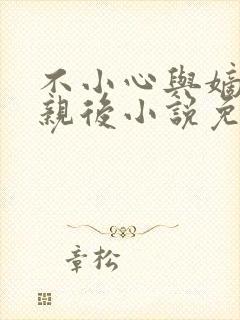 不小心與嫡
親後小說免
章松